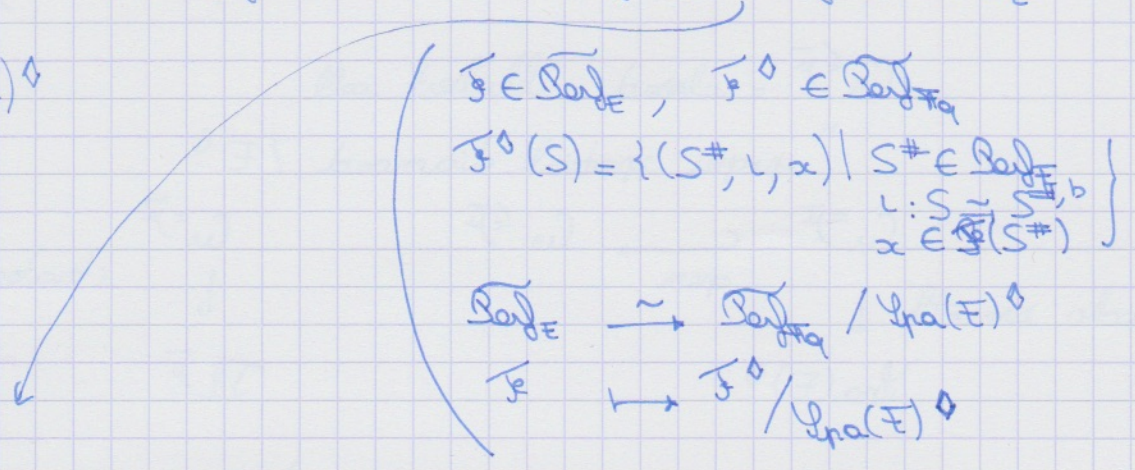 )^◊
𝓕 ∈ \widetilde{Perf}_E , 𝓕^◊ ∈ \widetilde{Perf}_{𝔽_q}
𝓕^◊(S) = {(S^#, ι, x) | S^# ∈ Perf_E
ι : S ≃ S^{#,b}
x ∈ 𝓕(S^#) }
\widetilde{Perf}_E \xrightarrow{∼} \widetilde{Perf}_{𝔽_q} / Spa(E)^◊
𝓕 ↦ 𝓕^◊ / Spa(E)^◊